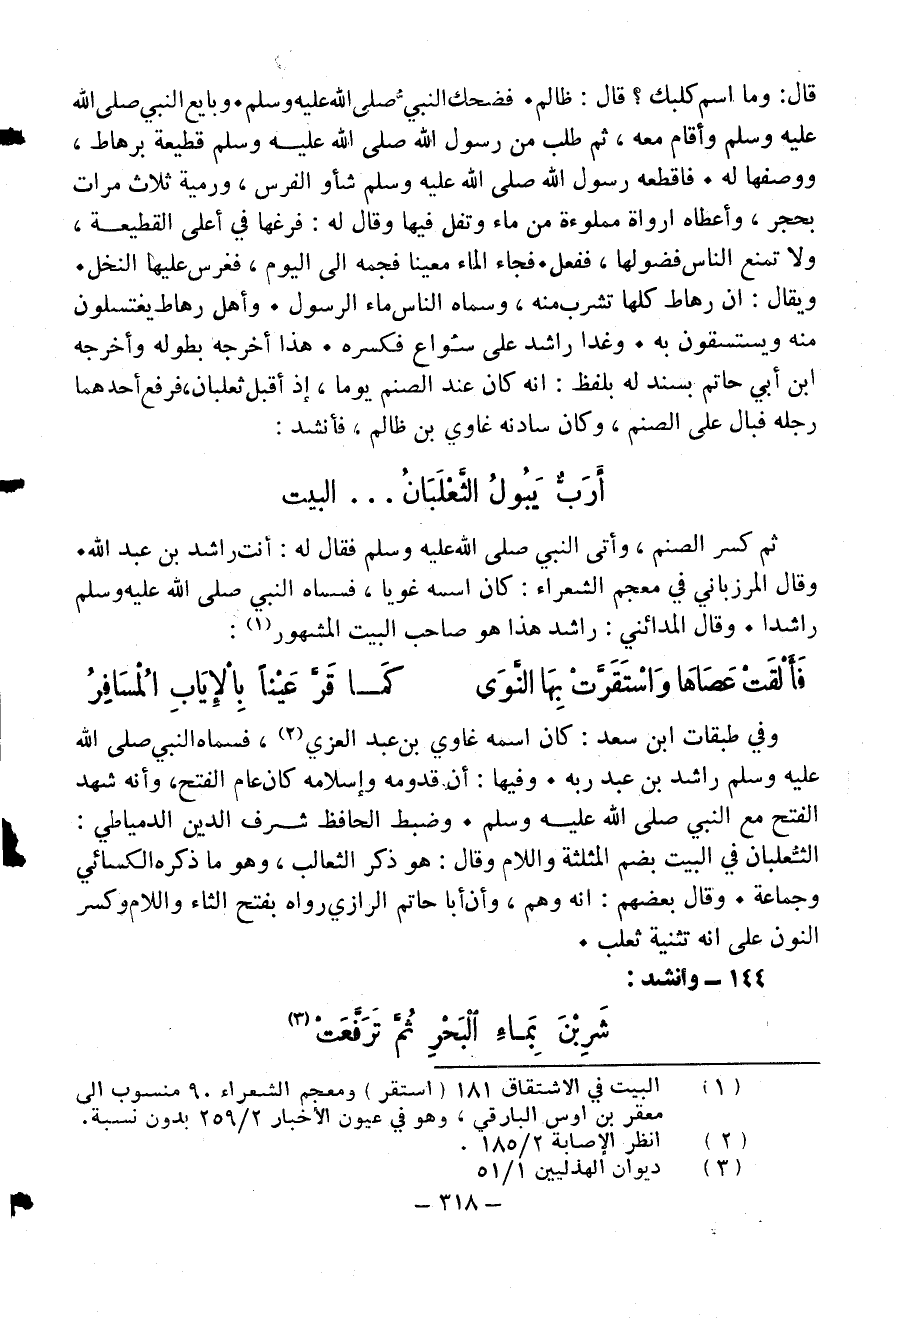 قال: وما اسم كلبك ؟ قال : ظالم • فضحك النبي صلى الله عليه وسلم • وبايع النبي صلى الله
عليه وسلم وأقام معه ، ثم طلب من رسول الله صلى الله عليه وسلم قطيعة برهاط ،
ووصفها له • فاقطعه رسول الله صلى الله عليه وسلم شأو الفرس ، ورمية ثلاث مرات
بحجر ، وأعطاه ارواة مملوءة من ماء وتفل فيها وقال له : فرغها في أعلى القطيعة ،
ولا تمنع الناس فضولها ، ففعل • فجاء الماء معينا فجمه الى اليوم ، فغرس عليها النخل •
ويقال : ان رهاط كلها تشرب منه ، وسماه الناس ماء الرسول • وأهل رهاط يغتسلون
منه ويستسقون به • وغدا راشد على سُواع فكسره • هذا أخرجه بطوله وأخرجه
ابن أبي حاتم بسند له بلفظ : انه كان عند الصنم يوما ، إذ أقبل ثعلبان، فرفع أحدهما
رجله فبال على الصنم ، وكان سادنه غاوي بن ظالم ، فأنشد :
أَرَبٌّ يَبُولُ الثَّعْلَبَانُ ... البيت
ثم كسر الصنم ، وأتى النبي صلى الله عليه وسلم فقال له : أنت راشد بن عبد الله •
وقال المرزباني في معجم الشعراء : كان اسمه غويا ، فسماه النبي صلى الله عليه وسلم
راشدا • وقال المدائني : راشد هذا هو صاحب البيت المشهور(١) :
فَأَلْقَتْ عَصَاهَا وَاسْتَقَرَّتْ بِهَا النَّوَى كَمَا قَرَّ عَيْناً بِالْإِيَابِ الْمُسَافِرُ
وفي طبقات ابن سعد : كان اسمه غاوي بن عبد العزي(٢) ، فسماه النبي صلى الله
عليه وسلم راشد بن عبد ربه • وفيها : أن قدومه وإسلامه كان عام الفتح، وأنه شهد
الفتح مع النبي صلى الله عليه وسلم • وضبط الحافظ شرف الدين الدمياطي :
الثُعلبان في البيت بضم المثلثة واللام وقال : هو ذكر الثعالب ، وهو ما ذكره الكسائي
وجماعة • وقال بعضهم : انه وهم ، وأن أبا حاتم الرازي رواه بفتح الثاء واللام وكسر
النون على انه تثنية ثعلب •
١٤٤ – وأنشد :
شَرِبْنَ بِمَاءِ الْبَحْرِ ثُمَّ تَرَفَّعَتْ(٣)
(١) البيت في الاشتقاق ١٨١ ( استقر ) ومعجم الشعراء ٩٠ منسوب الى
معقر بن اوس البارقي ، وهو في عيون الأخبار ٢٥٩/٢ بدون نسبة.
(٢) انظر الإصابة ١٨٥/٢ .
(٣) ديوان الهذليين ٥١/١
– ٣١٨ –